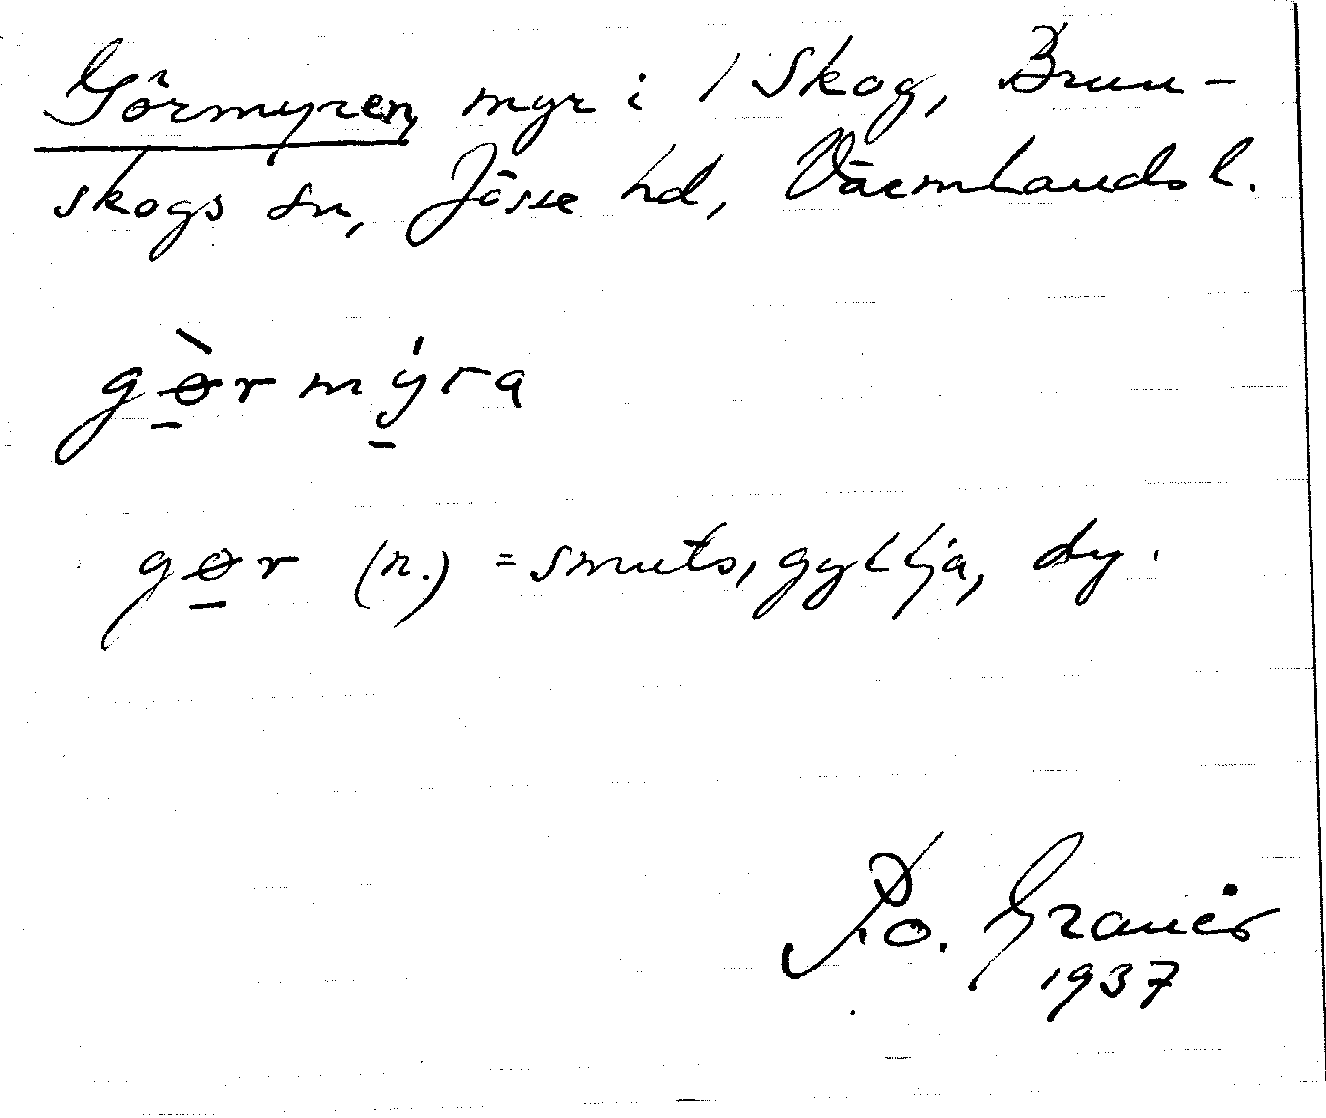 Görmyren, myr i / Skog, Brun-
skogs sn, Jösse hd, Värmlands l.
gø̀rmýra
gør (n.) = smuts, gyttja, dy.
P.o. Granér
1937